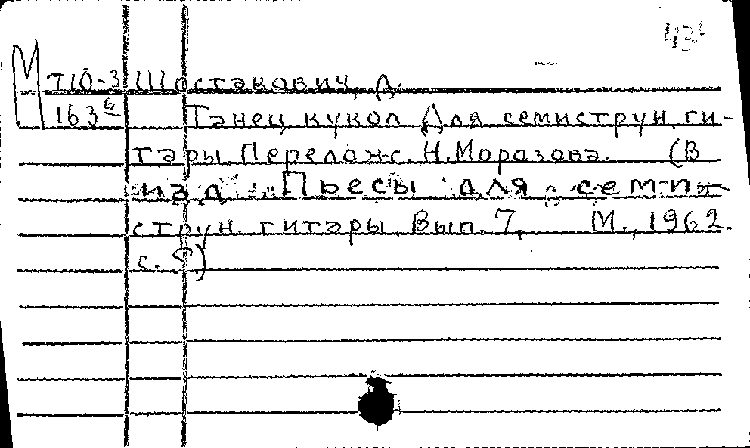 43
М Т10-3 Шостакович, Д.
163б Танец кукол Для семиструн. ги-
тары. Перелож. Н. Морозова. (В
изд. Пьесы для семи-
струн. гитары. Вып. 7. М., 1962.
с.